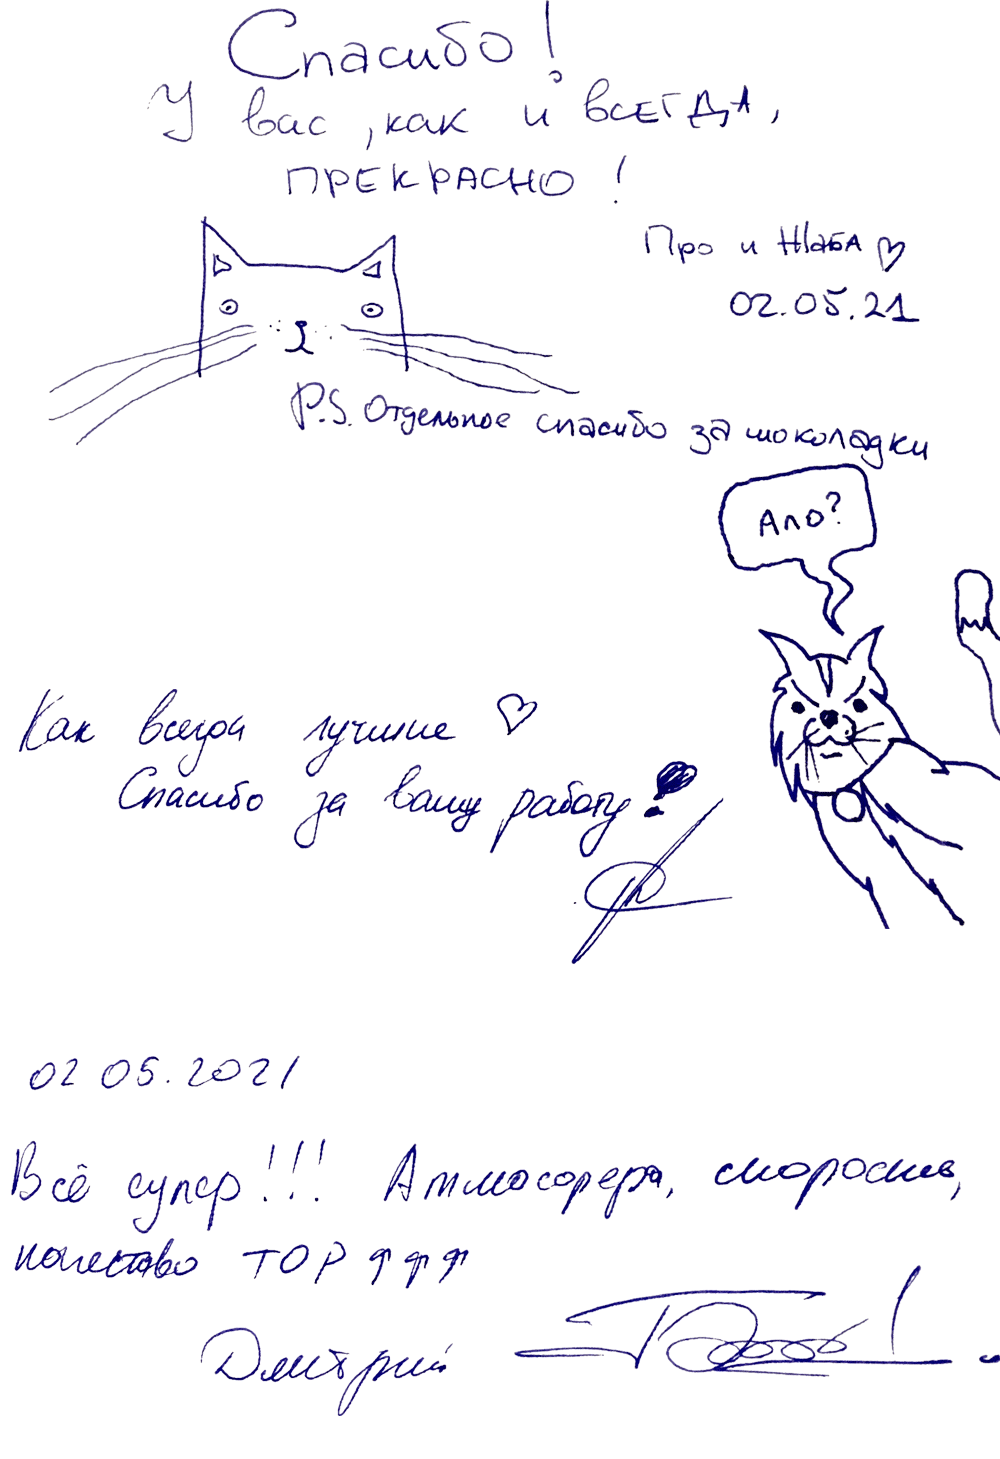 Спасибо!
У вас, как и всегда,
ПРЕКРАСНО!
Про и Жаба ♡
02.05.21
P.S. Отдельное спасибо за шоколадки
Ало?
Как всегда лучшие ♡
Спасибо за вашу работу!
02 05.2021
Всё супер!!! Атмосфера, скорость,
качество TOP ↑↑↑
Дмитрий